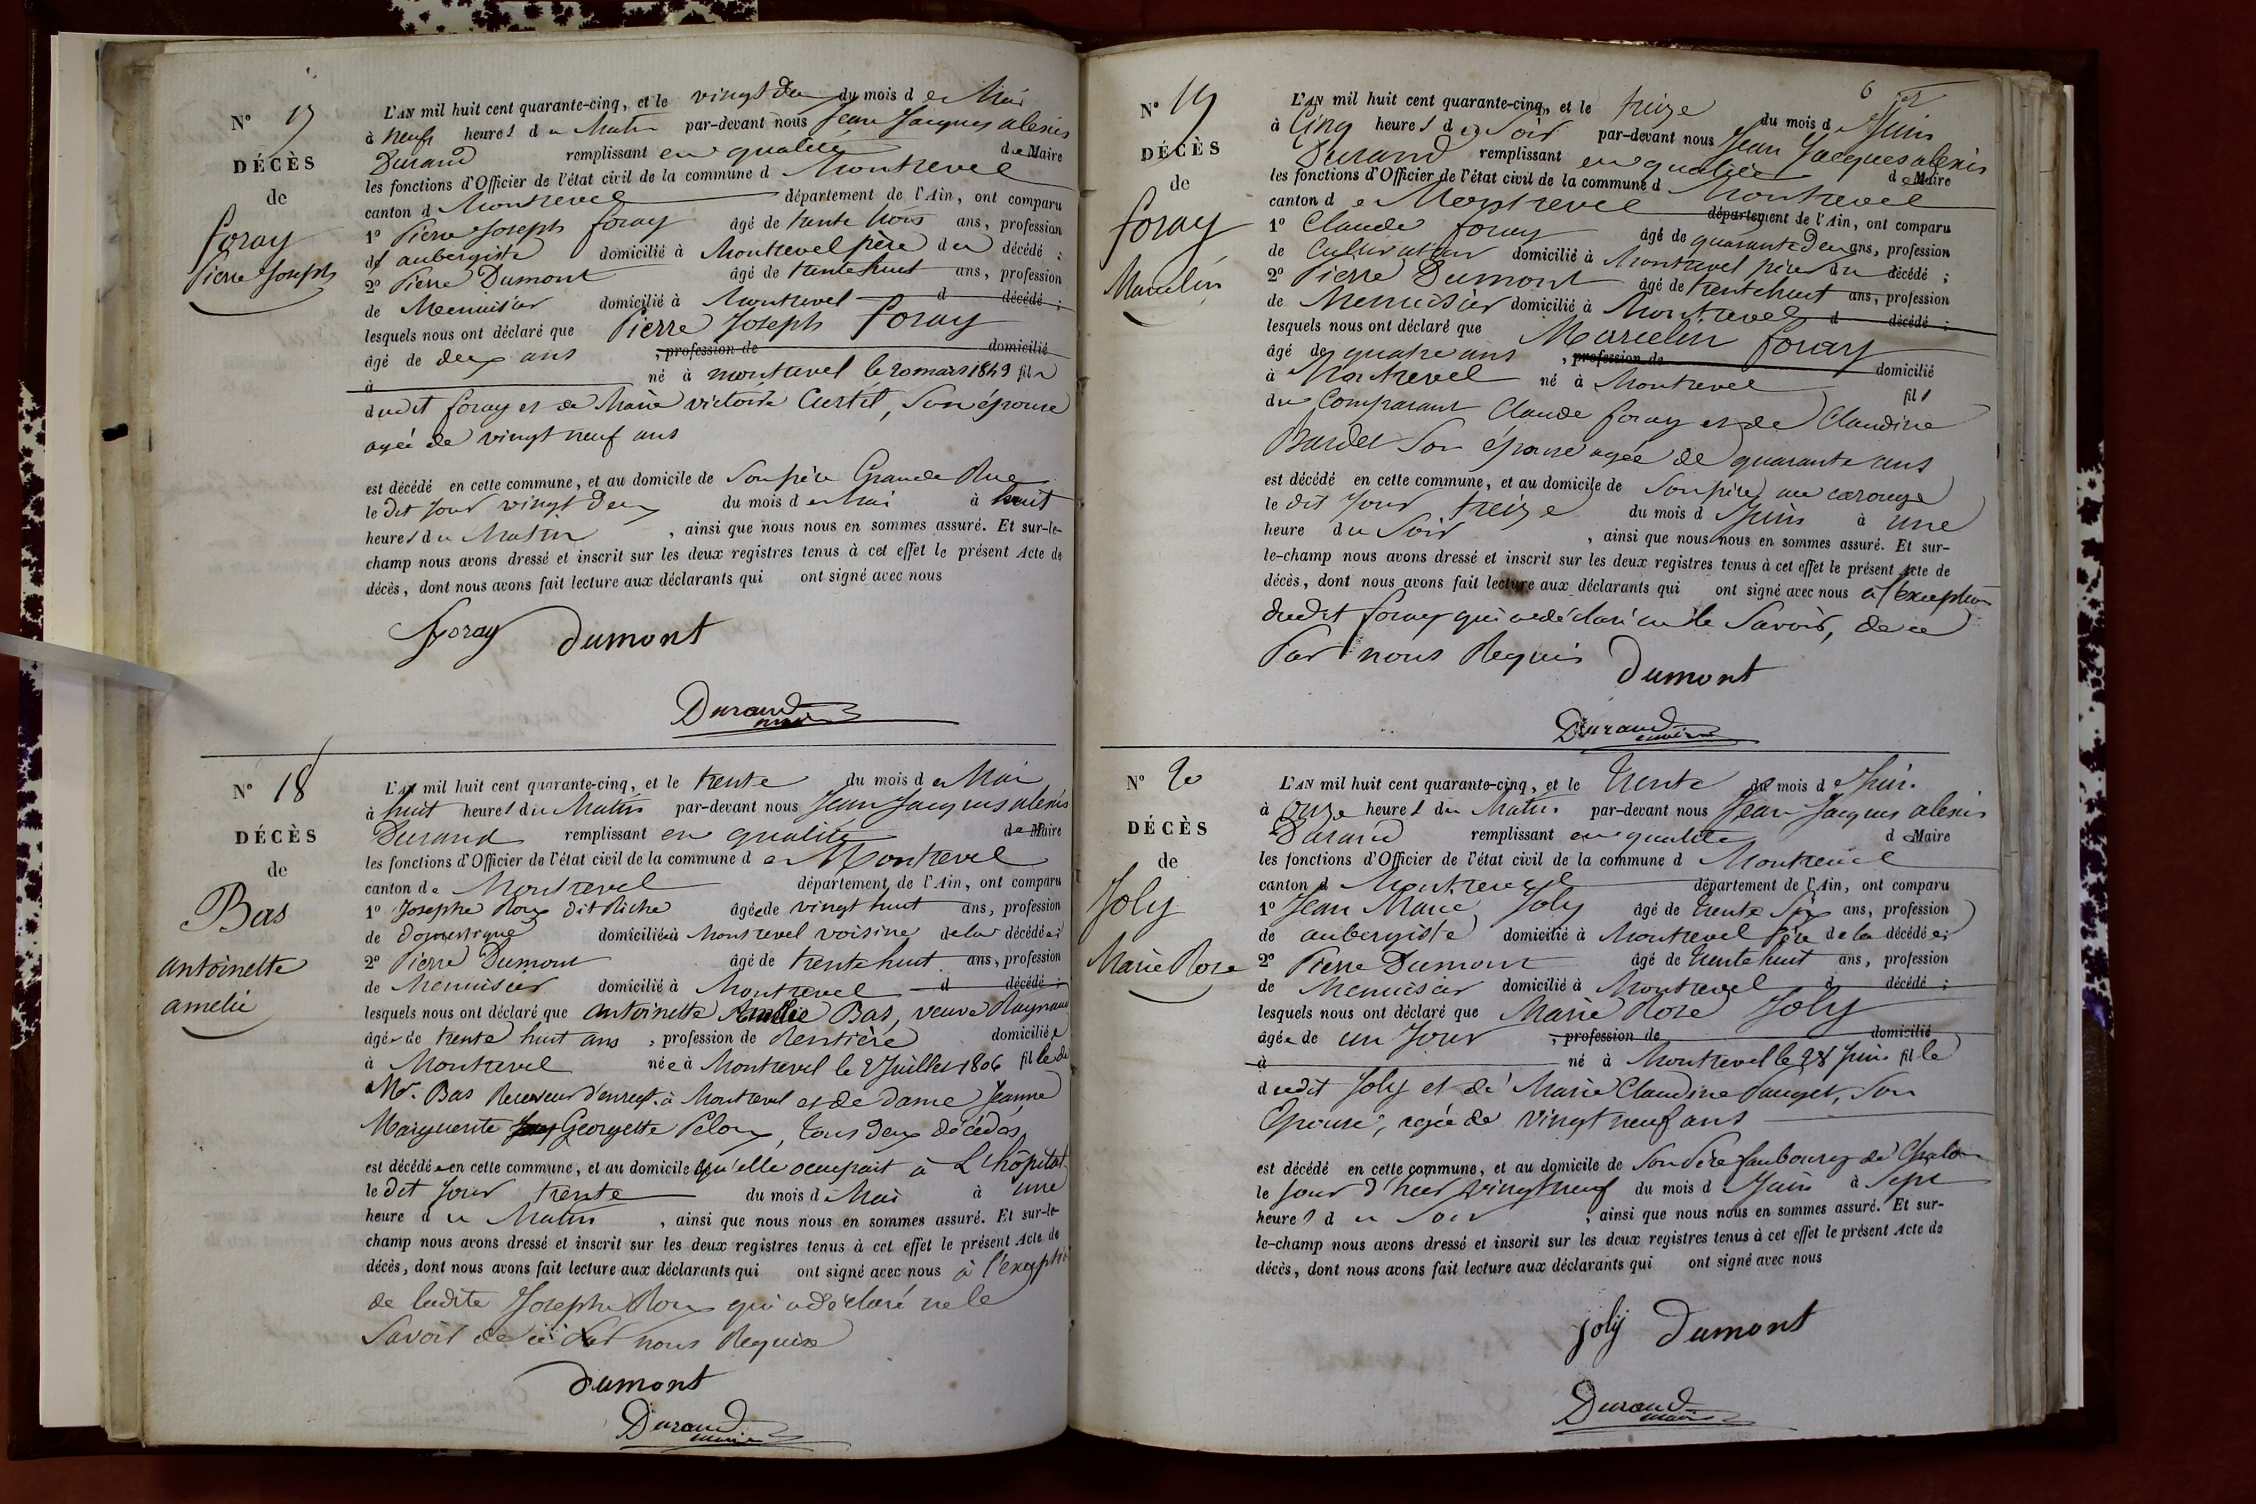 N° 17
DÉCÈS
de
foray
Pierre Joseph
L'AN mil huit cent quarante-cinq, et le vingt deux du mois de Mai
à neuf heures du Matin par-devant nous Jean Jacques alexis
Durand remplissant en qualité de Maire
les fonctions d'Officier de l'état civil de la commune de Montrevel
canton de Montrevel département de l'Ain, ont comparu
1° Pierre Joseph foray âgé de trente trois ans, profession
d' aubergiste domicilié à Montrevel père du décédé ;
2° Pierre Dumont âgé de trente huit ans, profession
de Menuisier domicilié à Montrevel d décédé ;
lesquels nous ont déclaré que Pierre Joseph foray
âgé de deux ans , profession de domicilié
à né à montrevel le 20 mars 1843 fils
dudit foray et de Marie victoire Curtil, son épouse
agée de vingt neuf ans
est décédé en cette commune, et au domicile de son père Grande Rue
le dit jour vingt deux du mois de Mai à huit
heures du Matin , ainsi que nous nous en sommes assuré. Et sur-le-
champ nous avons dressé et inscrit sur les deux registres tenus à cet effet le présent Acte de
décès, dont nous avons fait lecture aux déclarants qui ont signé avec nous
foray dumont
Durand
maire
N° 18
DÉCÈS
de
Bas
antoinette
amelie
L'AN mil huit cent quarante-cinq, et le trente du mois de Mai
à huit heures du Matin par-devant nous Jean Jacques alexis
Durand remplissant en qualité de Maire
les fonctions d'Officier de l'état civil de la commune de Montrevel
canton de Montrevel département de l'Ain, ont comparu
1° Josephe Roux dit Riche âgée de vingt huit ans, profession
de domestique domiciliée à Montrevel voisine de la décédée ;
2° Pierre Dumont âgé de trente huit ans, profession
de Menuisier domicilié à Montrevel d décédé ;
lesquels nous ont déclaré que antoinette Amelie Bas, veuve Raynaud
âgée de trente huit ans , profession de Rentière domiciliée
à Montrevel née à Montrevel le 2 Juillet 1806 fille de
Mr. Bas Receveur d'enregt. à Montrevel et de dame Jeanne
Marguerite Georgette Peloux, tous deux décédés
est décédée en cette commune, et au domicile qu'elle occupait à L'hôpital
le dit jour trente du mois de Mai à une
heure du Matin , ainsi que nous nous en sommes assuré. Et sur-le-
champ nous avons dressé et inscrit sur les deux registres tenus à cet effet le présent Acte de
décès, dont nous avons fait lecture aux déclarants qui ont signé avec nous à l'exception
de ladite Josephe Roux qui a déclaré ne le
Savoir de ce par nous Requise
dumont
Durand
maire
6
N° 19
DÉCÈS
de
foray
Marcelin
L'AN mil huit cent quarante-cinq, et le treize du mois de Juin
à Cinq heures du Soir par-devant nous Jean Jacques alexis
Durand remplissant en qualité de Maire
les fonctions d'Officier de l'état civil de la commune d Montrevel
canton de Montrevel département de l'Ain, ont comparu
1° Claude foray âgé de quarante deux ans, profession
de Cultivateur domicilié à Montrevel père du décédé ;
2° Pierre Dumont âgé de trente huit ans, profession
de Menuisier domicilié à Montrevel d décédé ;
lesquels nous ont déclaré que Marcelin foray
âgé de quatre ans , profession de domicilié
à Montrevel né à Montrevel fils
du Comparant Claude foray et de Claudine
Bardet Son épouse agée de quarante ans
est décédé en cette commune, et au domicile de son père, au carouge
le dit jour treize du mois de Juin à une
heure du Soir , ainsi que nous nous en sommes assuré. Et sur-
le-champ nous avons dressé et inscrit sur les deux registres tenus à cet effet le présent Acte de
décès, dont nous avons fait lecture aux déclarants qui ont signé avec nous à l'exception
dudit foray qui a déclaré ne le Savoir, de ce
Par nous Requis
dumont
Durand
maire
N° 20
DÉCÈS
de
Joly
Marie Rose
L'AN mil huit cent quarante-cinq, et le trente du mois de Juin
à Onze heures du Matin par-devant nous Jean Jacques alexis
Durand remplissant en qualité de Maire
les fonctions d'Officier de l'état civil de la commune d Montrevel
canton d Montrevel département de l'Ain, ont comparu
1° Jean Marie Joly âgé de trente Six ans, profession
de aubergiste domicilié à Montrevel père de la décédée ;
2° Pierre Dumont âgé de trente huit ans, profession
de Menuisier domicilié à Montrevel d décédé ;
lesquels nous ont déclaré que Marie Rose Joly
âgée de un Jour , profession de domicilié
à né à Montrevel le 28 Juin fille
dudit Joly et de Marie Claudine Pauget, Son
Epouse, agée de vingt neuf ans
est décédé en cette commune, et au domicile de Son Père faubourg de Chalon
le Jour d'hier vingt neuf du mois de Juin à Sept
heures du Soir , ainsi que nous nous en sommes assuré. Et sur-
le-champ nous avons dressé et inscrit sur les deux registres tenus à cet effet le présent Acte de
décès, dont nous avons fait lecture aux déclarants qui ont signé avec nous
joly dumont
Durand
maire